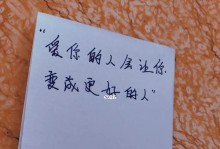 “爱你的人会让你
变成更好的人”